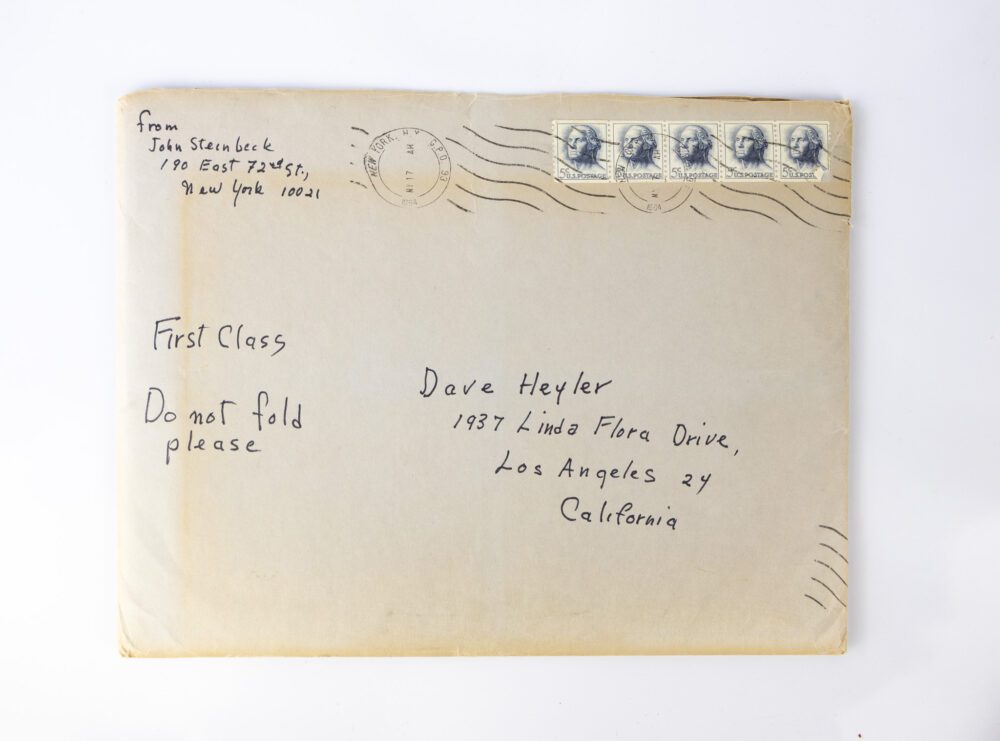 from
John Steinbeck
190 East 72nd St.,
New York 10021
NEW YORK, N.Y.
G.P.O.
AM
17
1964
5¢ U.S.POSTAGE
5¢ U.S.POSTAGE
5¢ U.S.POSTAGE
5¢ U.S.POSTAGE
5¢ U.S.POSTAGE
First Class
Do not fold
please
Dave Heyler
1937 Linda Flora Drive,
Los Angeles 24
California